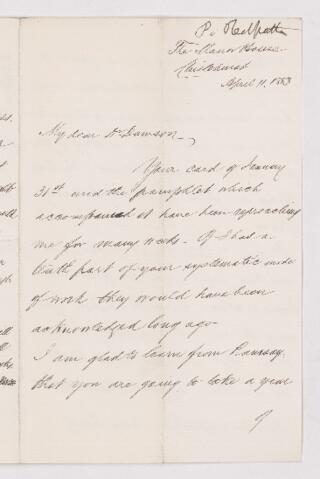 P. Redpath
The Manor House
Chislehurst
April 11. 1883
My dear Dr Dawson,
Your card of January
31st and the pamphlet which
accompanied it have been reproaching
me for many weeks - If I had a
tenth part of your systematic mode
of work they would have been
acknowledged long ago -
I am glad to learn from Ramsay
that you are going to take a year